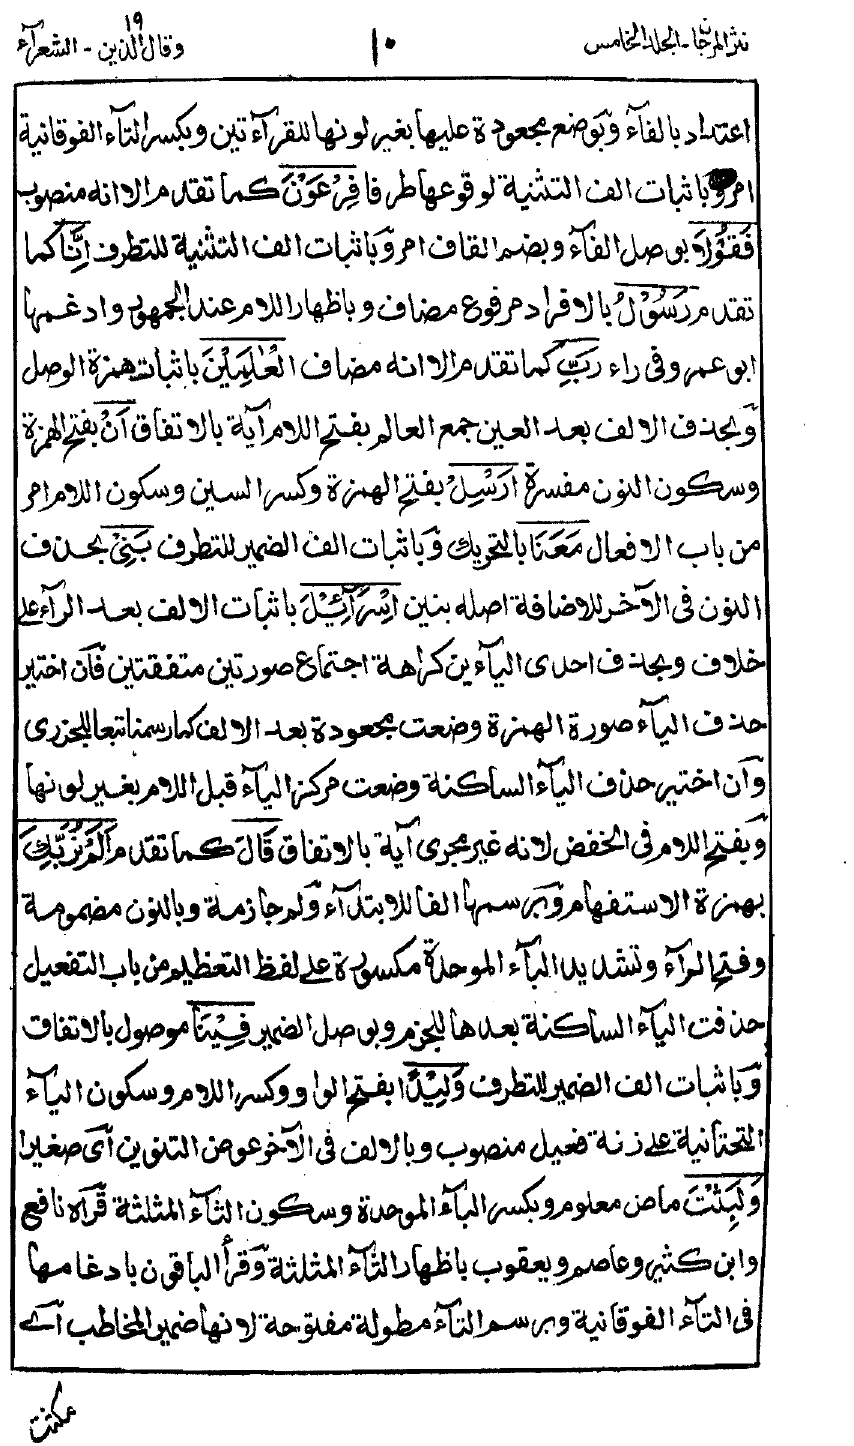 نثر المرجان - الجلد الخامس ١٠ وقال الذين ١٩ - الشعرآء
اعتداد بالفآء وبوضع مجعودة عليها بغير لونها للقرآءتين وبكسر التآء الفوقانية
امر وباثبات الف التثنية لوقوعها طرفا فِرْعَوْنَ كما تقدم الا انه منصوب
فَقُوْلَا بوصل الفآء وبضم القاف امر وباثبات الف التثنية للتطرف اِنَّا كما
تقدم رَسُوْلُ بالافراد مرفوع مضاف وباظهار اللام عند الجمهور وادغمها
ابو عمرو فى راء رَبِّ كما تقدم الا انه مضاف الْعٰلَمِيْنَ باثبات همزة الوصل
وبحذف الالف بعد العين جمع العالم بفتح اللام آية بالاتفاق اَنْ بفتح الهمزة
وسكون النون مفسرة اَرْسِلْ بفتح الهمزة وكسر السين وسكون اللام امر
من باب الافعال مَعَنَا بالتحريك وباثبات الف الضمير للتطرف بَنِىْٓ بحذف
النون فى الآخر للاضافة اصله بنين اِسْرَآئِيْلَ باثبات الالف بعد الرآء على
خلاف وبحذف احدى اليآءين كراهة اجتماع صورتين متفقتين فان اختير
حذف اليآء صورة الهمزة وضعت مجعودة بعد الالف كما رسمنا تبعا للجزرى
وان اختير حذف اليآء الساكنة وضعت مركز اليآء قبل اللام بغير لونها
وبفتح اللام فى الخفض لانه غير مجرى آية بالاتفاق قَالَ كما تقدم اَلَمْ نُرَبِّكَ
بهمزة الاستفهام وبرسمها الفا للابتدآء ولم جازمة وبالنون مضمومة
وفتح الرآء وتشديد البآء الموحدة مكسورة على لفظ التعظيم من باب التفعيل
حذفت اليآء الساكنة بعدها للجزم وبوصل الضمير فِيْنَا موصول بالاتفاق
وباثبات الف الضمير للتطرف وَلِيْدًا بفتح الواو وكسر اللام وسكون اليآء
التحتانية على زنة فعيل منصوب وبالالف فى الآخر عوض التنوين اى صغيرا
وَلَبِثْتَ ماض معلوم وبكسر البآء الموحدة وسكون الثآء المثلثة قرأه نافع
وابن كثير وعاصم ويعقوب باظهار الثآء المثلثة وقرأ الباقون بادغامها
فى التآء الفوقانية وبرسم التآء مطولة مفتوحة لانها ضمير المخاطب اى
مكثت